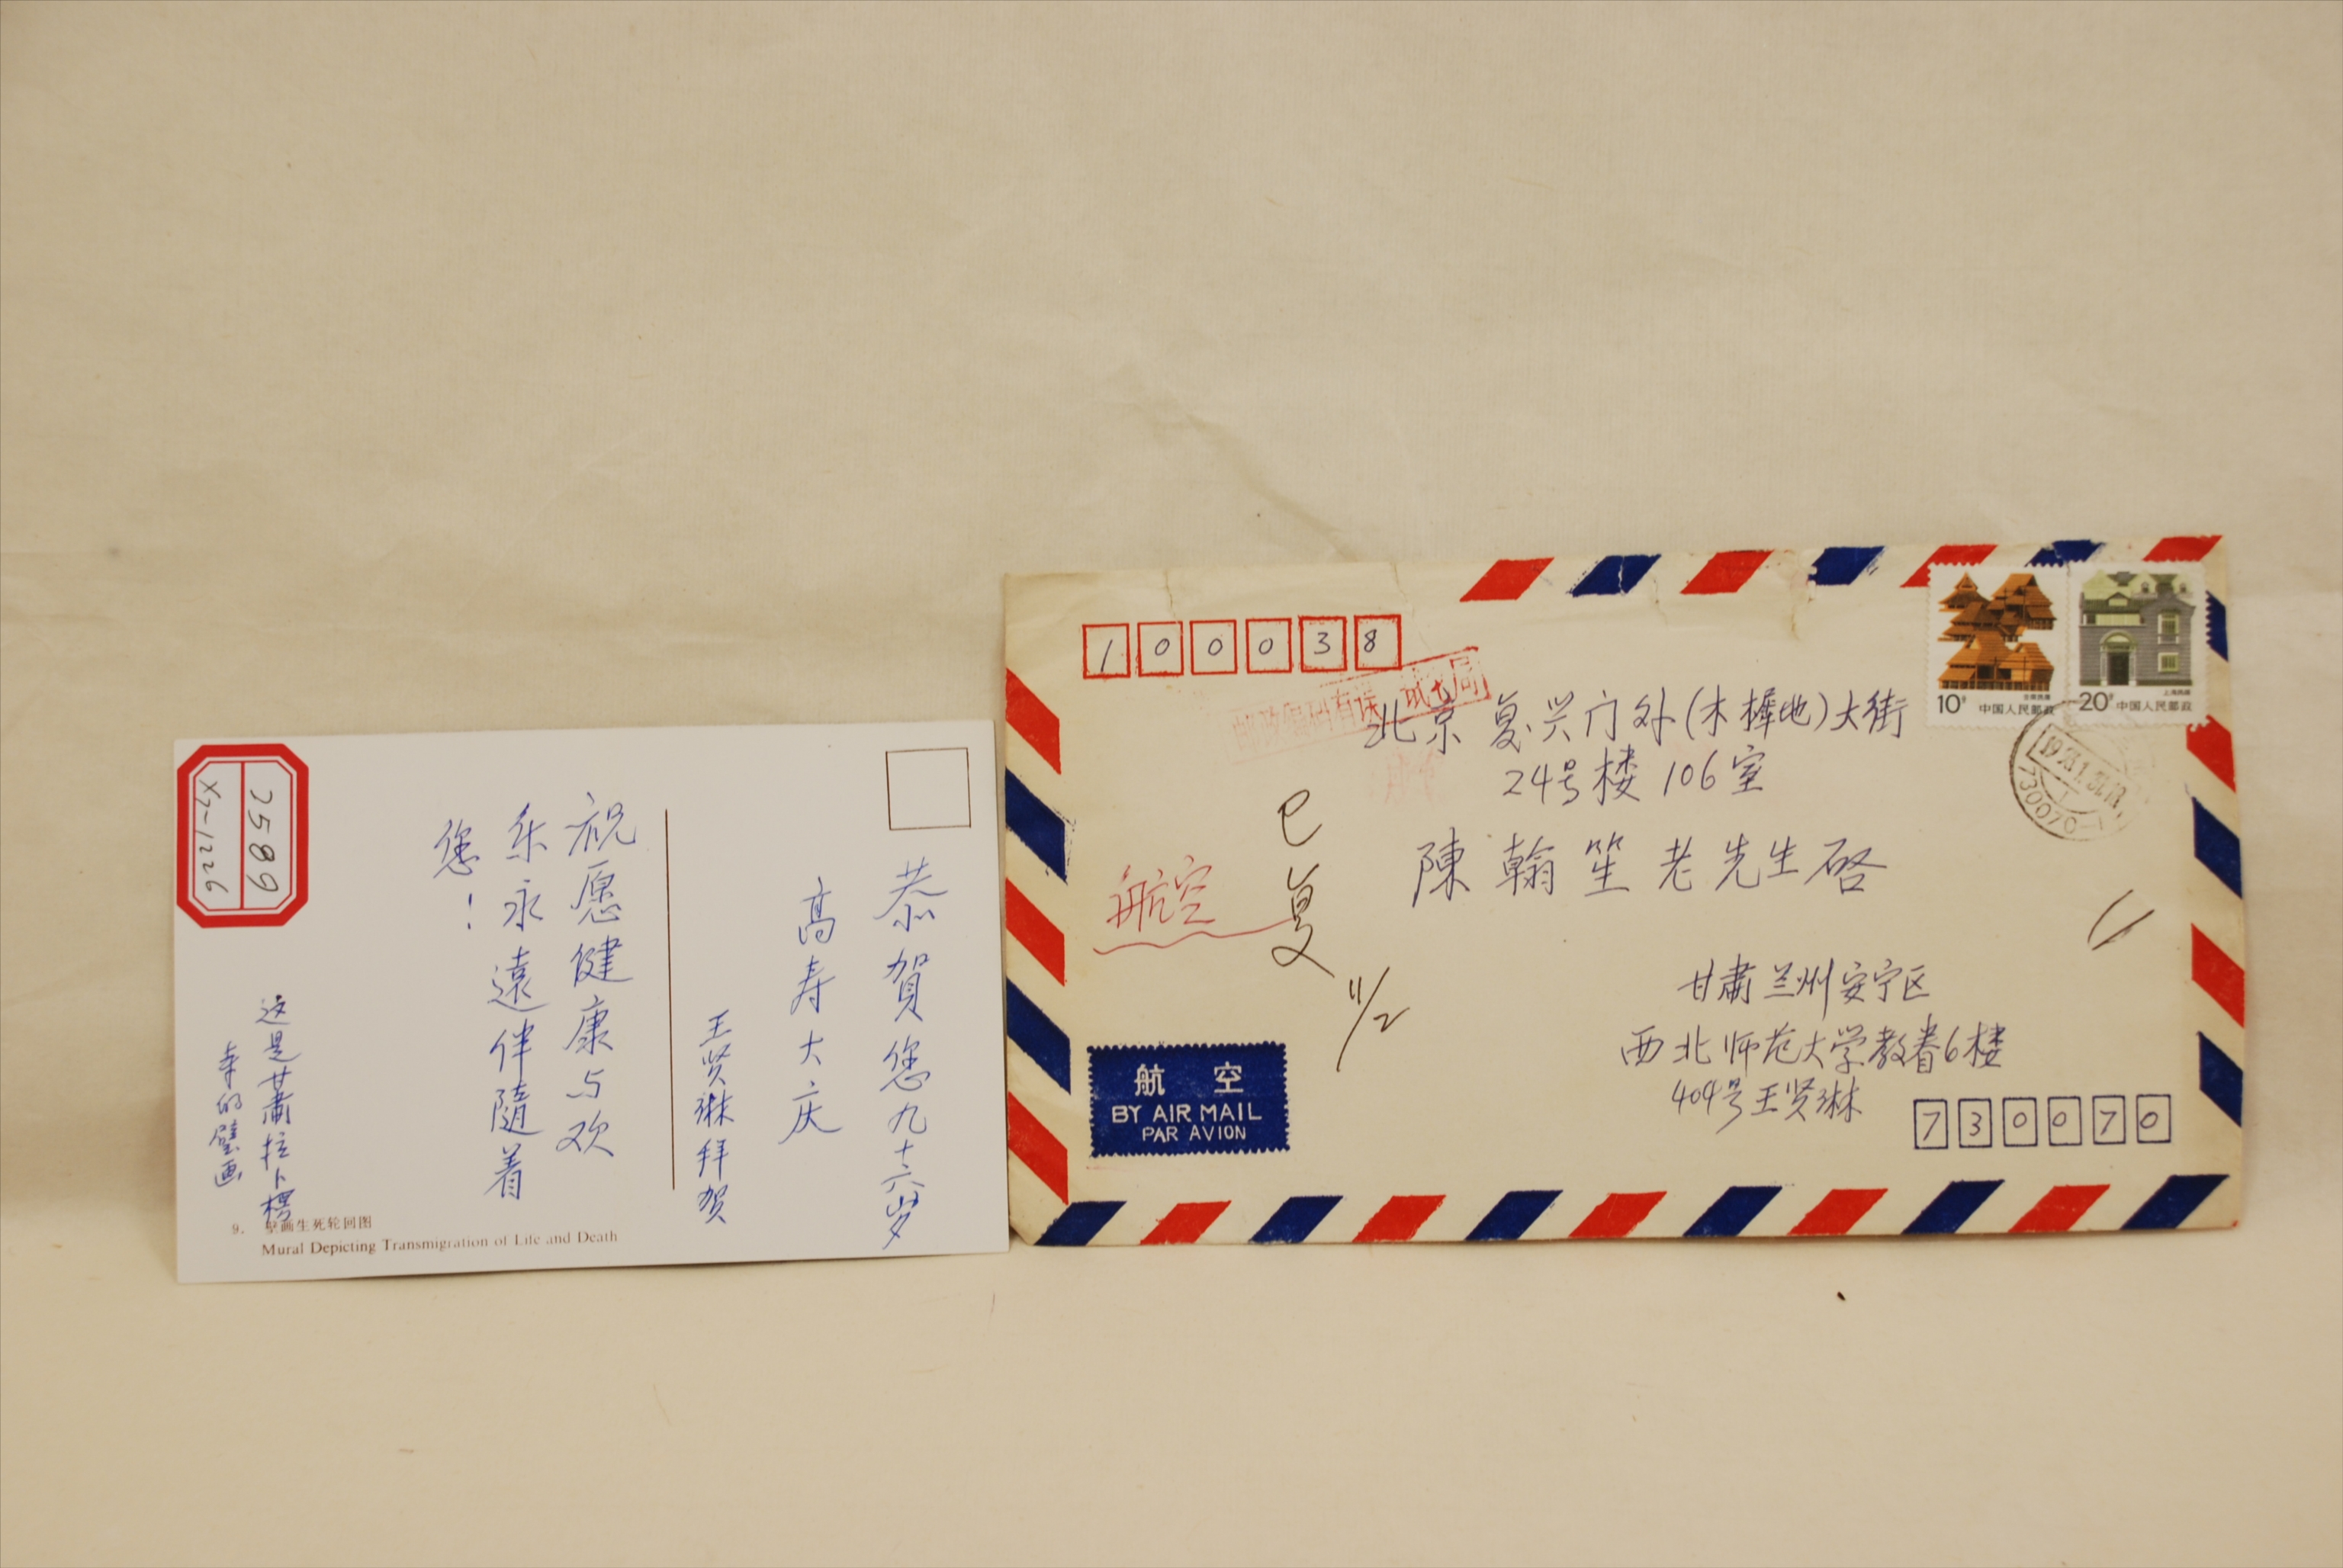 恭賀您九十六岁
高寿大庆
王贤琳拜贺
祝愿健康与欢
乐永遠伴隨着
您！
这是甘肃拉卜楞
寺的壁画
2589
X7-1226
9. 壁画生死轮回图
Mural Depicting Transmigration of Life and Death
100038
北京复兴门外(木樨地)大街
24号楼106室
陳翰笙老先生启
已复
11/2
航空
甘肃兰州安宁区
西北师范大学教眷6楼
404号王贤琳
730070
航空
BY AIR MAIL
PAR AVION
10分 中国人民邮政
20分 中国人民邮政
上海民居
730070